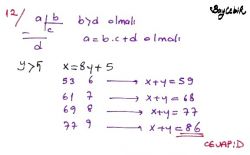 12/ a | b b>d olmalı BayÇebir
c
d a=b.c+d olmalı
y>5 x=8y+5
53 6 → x+y=59
61 7 → x+y=68
69 8 → x+y=77
77 9 → x+y=86
CEVAP:D